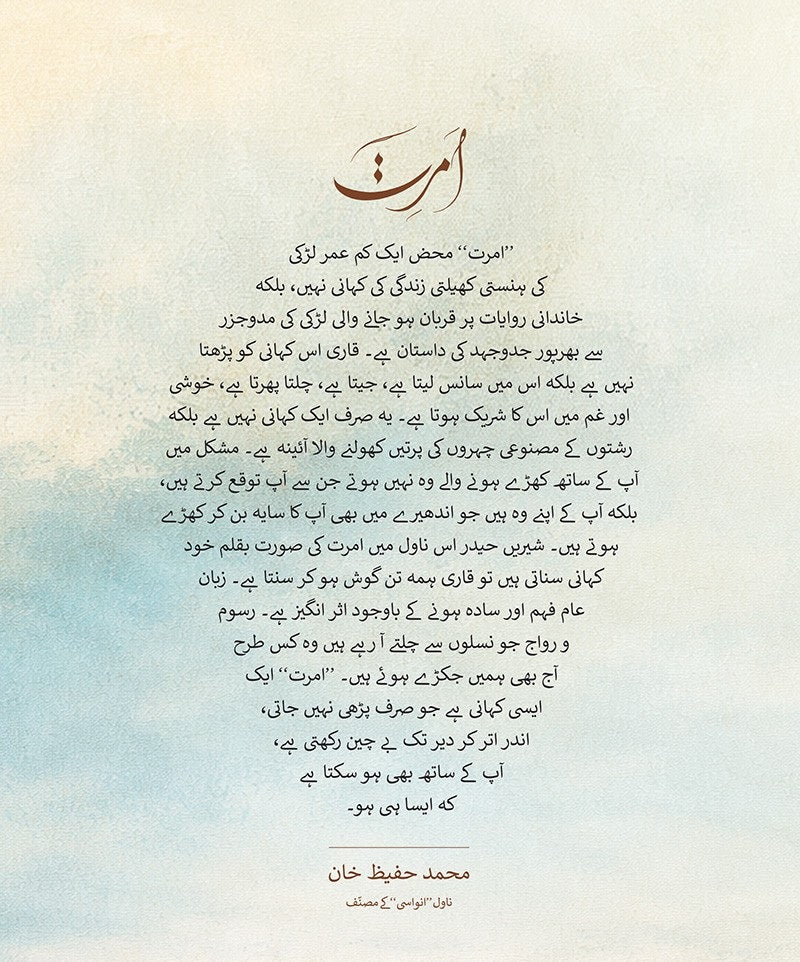 امرت
’’امرت‘‘ محض ایک کم عمر لڑکی
کی ہنستی کھیلتی زندگی کی کہانی نہیں، بلکہ
خاندانی روایات پر قربان ہو جانے والی لڑکی کی مدوجزر
سے بھرپور جدوجہد کی داستان ہے۔ قاری اس کہانی کو پڑھتا
نہیں ہے بلکہ اس میں سانس لیتا ہے، جیتا ہے، چلتا پھرتا ہے، خوشی
اور غم میں اس کا شریک ہوتا ہے۔ یہ صرف ایک کہانی نہیں ہے بلکہ
رشتوں کے مصنوعی چہروں کی پرتیں کھولنے والا آئینہ ہے۔ مشکل میں
آپ کے ساتھ کھڑے ہونے والے وہ نہیں ہوتے جن سے آپ توقع کرتے ہیں،
بلکہ آپ کے اپنے وہ ہیں جو اندھیرے میں بھی آپ کا سایہ بن کر کھڑے
ہوتے ہیں۔ شیریں حیدر اس ناول میں امرت کی صورت بقلم خود
کہانی سناتی ہیں تو قاری ہمہ تن گوش ہو کر سنتا ہے۔ زبان
عام فہم اور سادہ ہونے کے باوجود اثر انگیز ہے۔ رسوم
و رواج جو نسلوں سے چلتے آ رہے ہیں وہ کس طرح
آج بھی ہمیں جکڑے ہوئے ہیں۔ ’’امرت‘‘ ایک
ایسی کہانی ہے جو صرف پڑھی نہیں جاتی،
اندر اتر کر دیر تک بے چین رکھتی ہے،
آپ کے ساتھ بھی ہو سکتا ہے
کہ ایسا ہی ہو۔
محمد حفیظ خان
ناول ’’انواسی‘‘ کے مصنّف